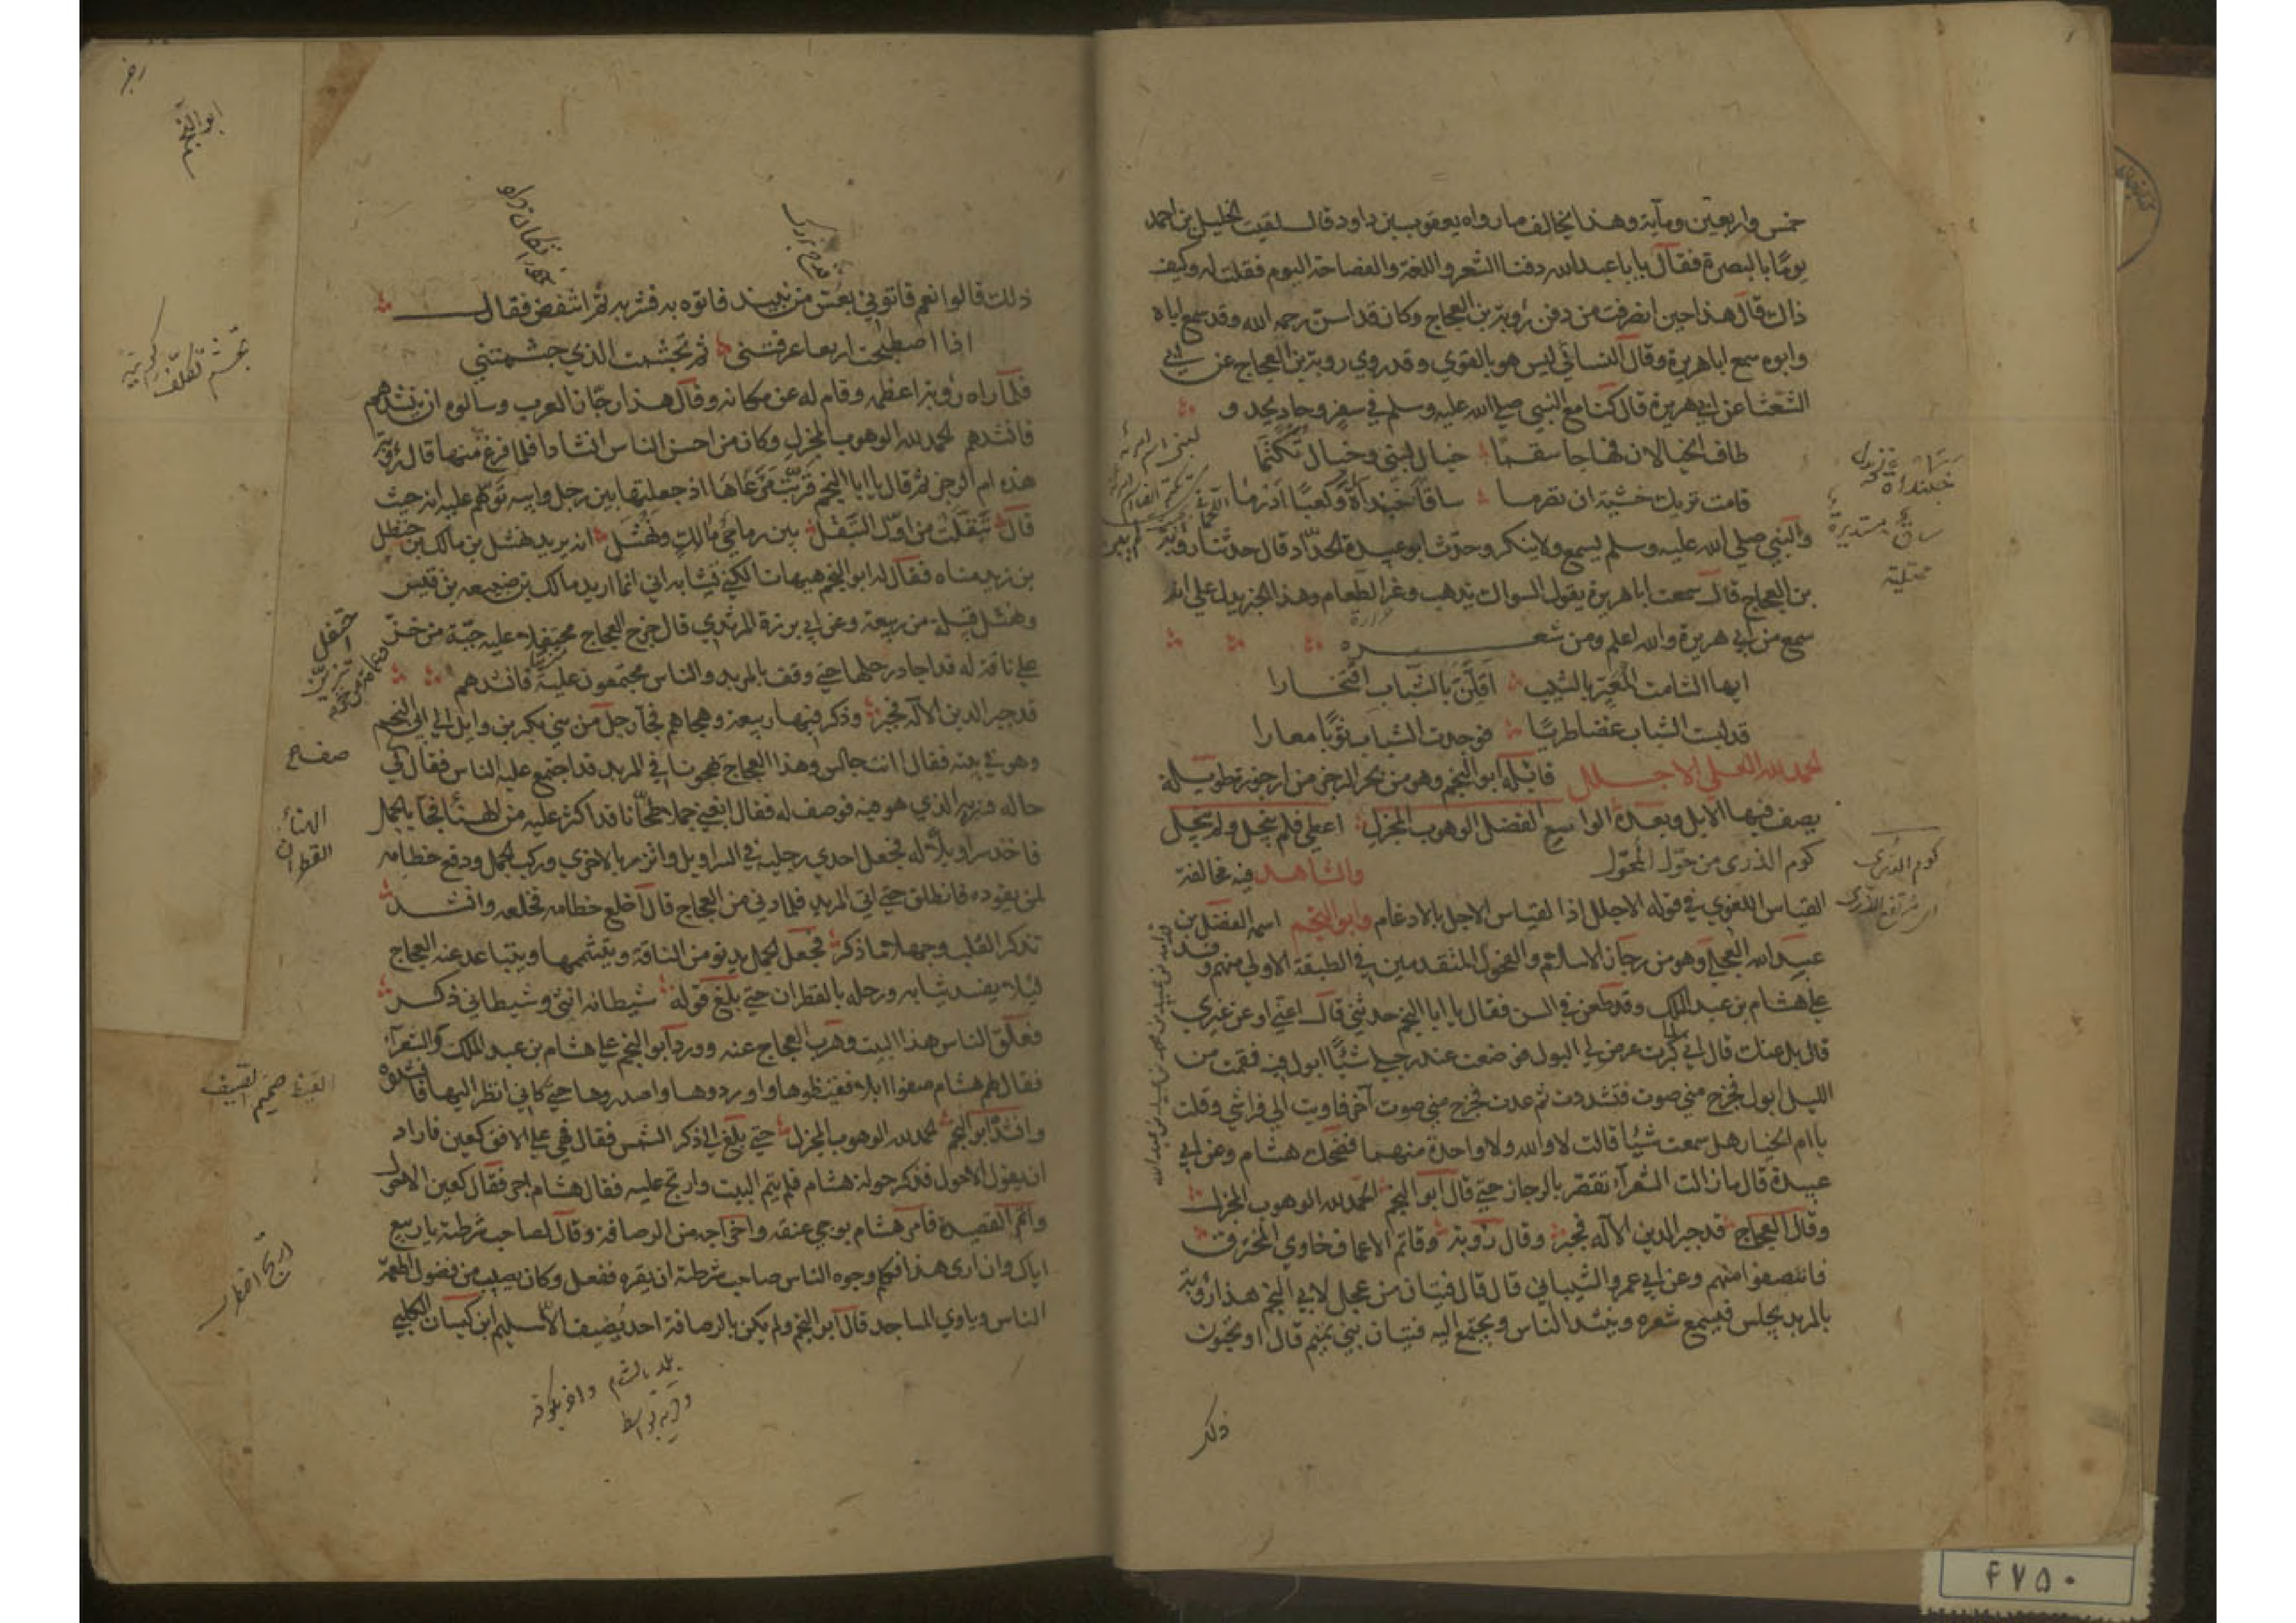 خمس واربعين ومآية وهذا يخالف ما رواه يعقوب بن داود قال لقيت الخليل بن احمد
يومًا بالبصرة فقال يا با عبد الله دفنا الشعر واللغة والفصاحة اليوم فقلت له وكيف
ذاك قال هذا حين انصرفت من دفن رؤبة بن العجاج وكان قد اسن رحمه الله وقد سمع اباه
وابوه سمع ابا هريرة وقال النسائي ليس هو بالقوي وقد روي روبة بن العجاج عن ابي
الشعثا عن ابي هريرة قال كنا مع النبي صلي الله عليه وسلم في سفر وحاد يحدو
طاف الخيالان فهاجا سقما خيال لبني وخيال تكتما
قامت تريك خشية ان تصرما ساقا خبنداة وكعبًا ادرما
والنبي صلي الله عليه وسلم يسمع ولا ينكر وحدث ابو عبيدة الحداد قال حدثنا روبة
بن العجاج قال سمعت ابا هريرة يقول السواك يذهب وغر الطعام وهذا الخبر يدل علي انه
سمع من ابي هريرة والله اعلم ومن شعره
ايها الشامت المعير بالشيب اقلن بالشباب افتخارا
قد لبست الشباب غضا طريًا فوجدت الشباب ثوبًا معارا
الحمد لله العلي الاجلل قايله ابو النجم وهو من بحر الرجز من ارجوزة طويلة
يصف فيها الابل وبعده الواسع الفضل الوهوب المجزل اعطي فلم يبخل ولم يبخل
كوم الذرى من خول المخول والشاهد فيه مخالفة
القياس اللغوي في قوله الاجلل اذا لقياس الاجل بالادغام وابو النجم اسمه الفضل بن
عبيد الله العجلي وهو من رجاز الاسلام والفحول المتقدمين في الطبقة الاولي منهم وفد
علي هشام بن عبد الملك وقد طعن في السن فقال يا ابا النجم حدثني قال اعني او عن غيري
قال بل عنك قال اني لما كبرت عرض لي البول فوضعت عند رجلي شيًا ابول فيه فقمت من
الليل ابول فخرج مني صوت فتشددت ثم عدت فخرج مني صوت آخر فاويت الي فراشي وقلت
يا ام الخيار هل سمعت شيًا قالت لا والله ولا واحدة منهما فضحك هشام وعن ابي
عبيدة قال ما زالت الشعرآء تقصر بالرجاز حتي قال ابو النجم الحمد لله الوهوب المجزل
وقال العجاج قد جبر الدين الآله فجبر وقال رؤبة وقاتم الاعماق خاوي المخترق
فانتصفوا منهم وعن ابي عمرو الشيباني قال قال فتيان من عجل لابي النجم هذا رؤبة
بالمربد يجلس فيسمع شعره وينشد الناس ويجتمع اليه فتيان بني تميم قال او تحبون
كوم الذرى
ذلك
ذلك قالوا نعم قال فاتوني بعس من نبيذ فاتوه به فشربه ثم انتفض فقال
اذا اصطبحت اربعا عرفتني ثم تجشمت الذي جشمتني
فلما راه رؤبة اعظمه وقام له عن مكانه وقال هذا رجاز العرب وسالوه ان ينشدهم
فانشدهم الحمد لله الوهوب المجزل وكان من احسن الناس انشادا فلما فرغ منها قال رؤبة
هذه ام الرجز ثم قال يا ابا النجم قربت مرعاها اذ جعلتها بين رجل وابنه توهم عليه انه حيث
قال تبقلت من اول التبقل بين رماحي مالك ونهشل انه يريد نهشل بن مالك بن حنظل
بن زيد مناه فقال له ابو النجم هيهات الكني تتشابه اني انما اريد مالك بن ضبيعه بن قيس
ونهشل قبيلة من ربيعة وعن ابي برزة المرثدي قال خرج العجاج محتفلا عليه جبة من خز
علي ناقة له قد اجاد رحلها حتي وقف بالمربد والناس مجتمعون عليه فانشدهم
قد جبر الدين الآله فجبر وذكر فيها ربيعة وهجاهم فجآء رجل من بني بكر بن وايل الي ابي النجم
وهو في بيته فقال انت جالس وهذا العجاج يهجونا في المربد قد اجتمع عليه الناس فقال لي
حاله وزيه الذي هو فيه فوصف له فقال ابغني جملا طحانا قد اكثر عليه من الهناء فجا بالجمل
فاخذ سراويلا له فجعل احدي رجليه في السراويل واتزر بالاخري وركب الجمل ودفع خطامه
لمن يقوده فانطلق حتي اتي المربد فلما دني من العجاج قال اخلع خطامه فخلعه وانشد
تذكر القلب وجهلا ما ذكر فجعل الجمل يدنو من الناقة ويتشممها ويتباعد عنه العجاج
ليلا يفسد ثيابه ورحله بالقطران حتي بلغ قوله شيطانه انثى وشيطاني ذكر
فعلق الناس هذا البيت وهرب العجاج عنه وورد ابو النجم علي هشام بن عبد الملك والشعرآء
فقال لهم هشام صفوا ابلا فقيظوها واوردوها واصدروها حتي كاني انظر اليها فانشدوه
وانشد ابو النجم الحمد لله الوهوب المجزل حتي بلغ الي ذكر الشمس فقال وهي علي الافق كعين فاراد
ان يقول الاحول فذكر حولة هشام فلم يتم البيت وارتج عليه فقال هشام اجز فقال كعين الاحول
واتم القصيدة فامر هشام بوجي عنقه واخراجه من الرصافة وقال لصاحب شرطته يا ربيع
اياك وان ارى هذا فكلم وجوه الناس صاحب شرطته ان يقره ففعل وكان يصيب من فضول اطعمة
الناس وياوي المساجد قال ابو النجم ولم يكن بالرصافة احد يضيف الا سليم ابن كيسان الكلبي
تجشم تكلف
صفاح
الهناء
القطران
۴۷۵۰